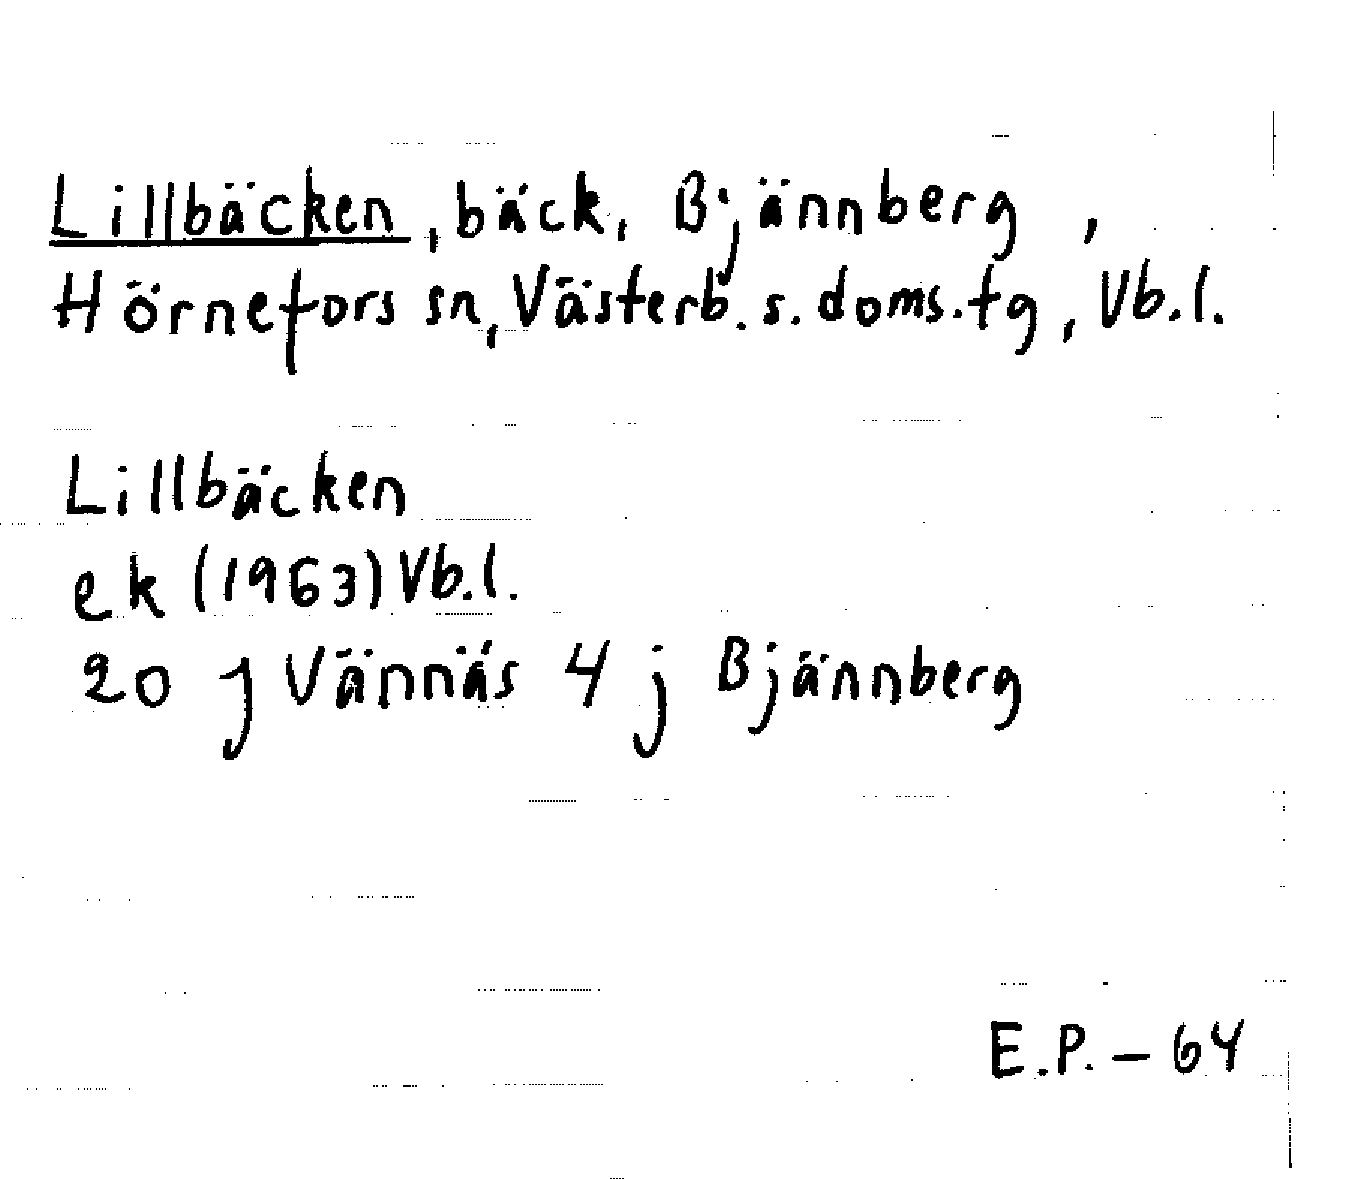 Lillbäcken, bäck, Bjännberg,
Hörnefors sn, Västerb. s. doms. tg, Vb.l.
Lillbäcken
ek (1963) Vb.l.
20 J Vännäs 4 j Bjännberg
E.P. – 64